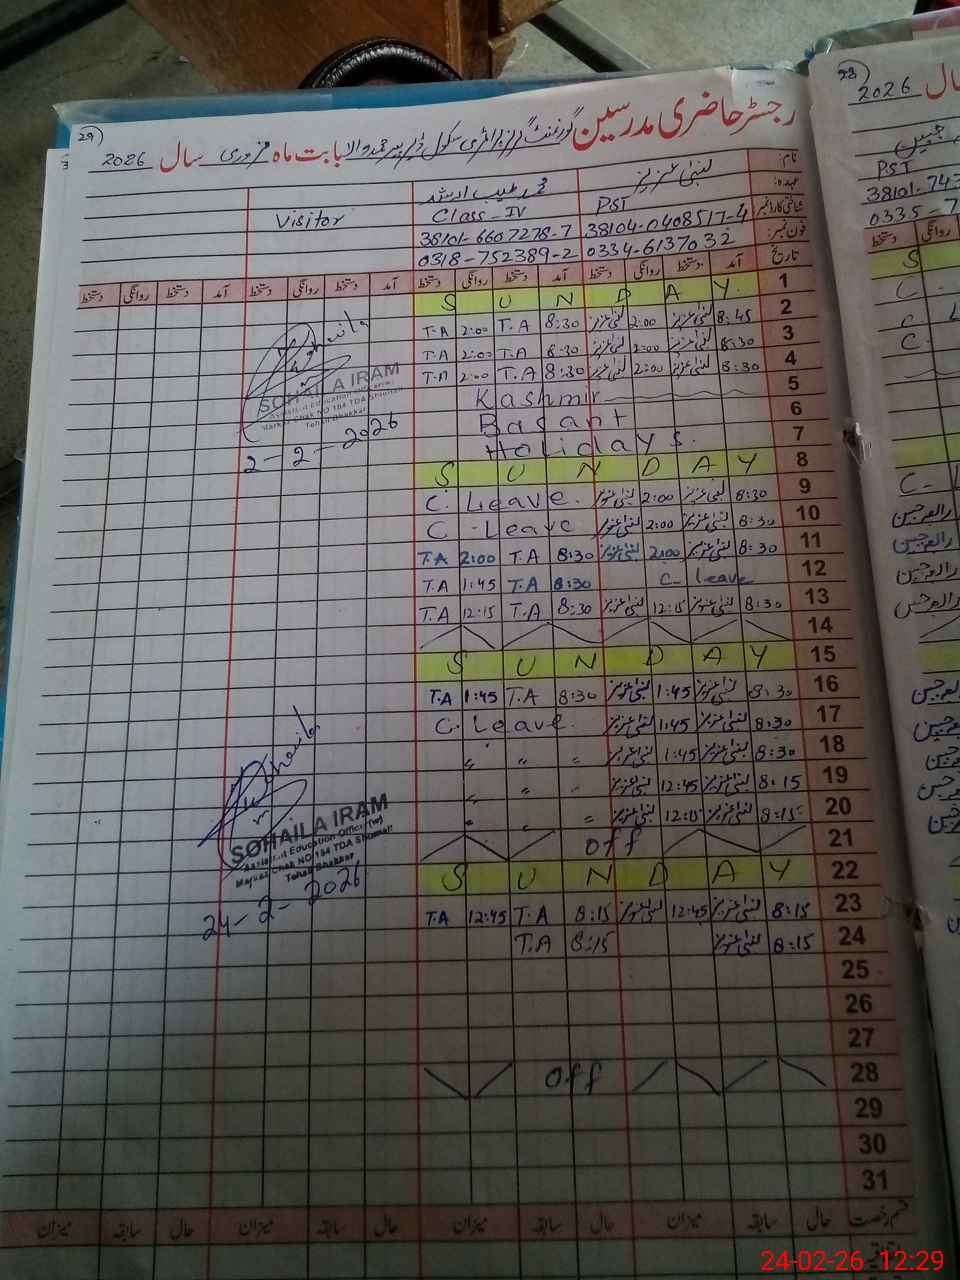 29
رجسٹر حاضری مدرسین گورنمنٹ گرلز پرائمری سکول ڈیرہ پیر محمد والا بابت ماہ فروری سال 2026
نام: لبنیٰ عزیز محمد طیب ارشد
عہدہ: PST Class-IV Visitor
شناختی کارڈ نمبر 38104-0408517-4 38101-6607278-7
فون نمبر: 0334-6137032 0318-752389-2
تاریخ آمد دستخط روانگی دستخط آمد دستخط روانگی دستخط آمد دستخط روانگی دستخط آمد دستخط روانگی دستخط
S U N D A Y 1
T.A 2:00 T.A 8:30 لبنیٰ عزیز 2:00 لبنیٰ عزیز 8:45 2
T.A 2:00 T.A 8:30 لبنیٰ عزیز 2:00 لبنیٰ عزیز 8:30 3
T.A 2:00 T.A 8:30 لبنیٰ عزیز 2:00 لبنیٰ عزیز 8:30 4
Kashmir 5
Basant 6
Holidays. 7
S U N D A Y 8
C. Leave. لبنیٰ عزیز 2:00 لبنیٰ عزیز 8:30 9
C - Leave لبنیٰ عزیز 2:00 لبنیٰ عزیز 8:30 10
T.A 2:00 T.A 8:30 لبنیٰ عزیز 2:00 لبنیٰ عزیز 8:30 11
T.A 1:45 T.A 8:30 C- Leave 12
T.A 12:15 T.A 8:30 لبنیٰ عزیز 12:15 لبنیٰ عزیز 8:30 13
14
S U N D A Y 15
T.A 1:45 T.A 8:30 لبنیٰ عزیز 1:45 لبنیٰ عزیز 8:30 16
C. Leave. لبنیٰ عزیز 1:45 لبنیٰ عزیز 8:30 17
" " " لبنیٰ عزیز 1:45 لبنیٰ عزیز 8:30 18
" " " لبنیٰ عزیز 12:45 لبنیٰ عزیز 8:15 19
" " " لبنیٰ عزیز 12:15 لبنیٰ عزیز 8:15 20
off 21
S U N D A Y 22
T.A 12:45 T.A 8:15 لبنیٰ عزیز 12:45 لبنیٰ عزیز 8:15 23
T.A 8:15 لبنیٰ عزیز 8:15 24
25
26
27
off 28
29
30
31
قسم رخصت حال سابقہ میزان حال سابقہ میزان حال سابقہ میزان حال سابقہ میزان
Sohaila
SOHAILA IRAM
Assistant Education Officer
Markaz Chak NO 194 TDA Shumali
Tehsil Bhakkar
2-2-2026
Sohaila
SOHAILA IRAM
Assistant Education Officer (w)
Markaz Chak NO 194 TDA Shumali
Tehsil Bhakkar
24-2-2026
28
2026
PST
38101-743
0335-7
24-02-26 12:29